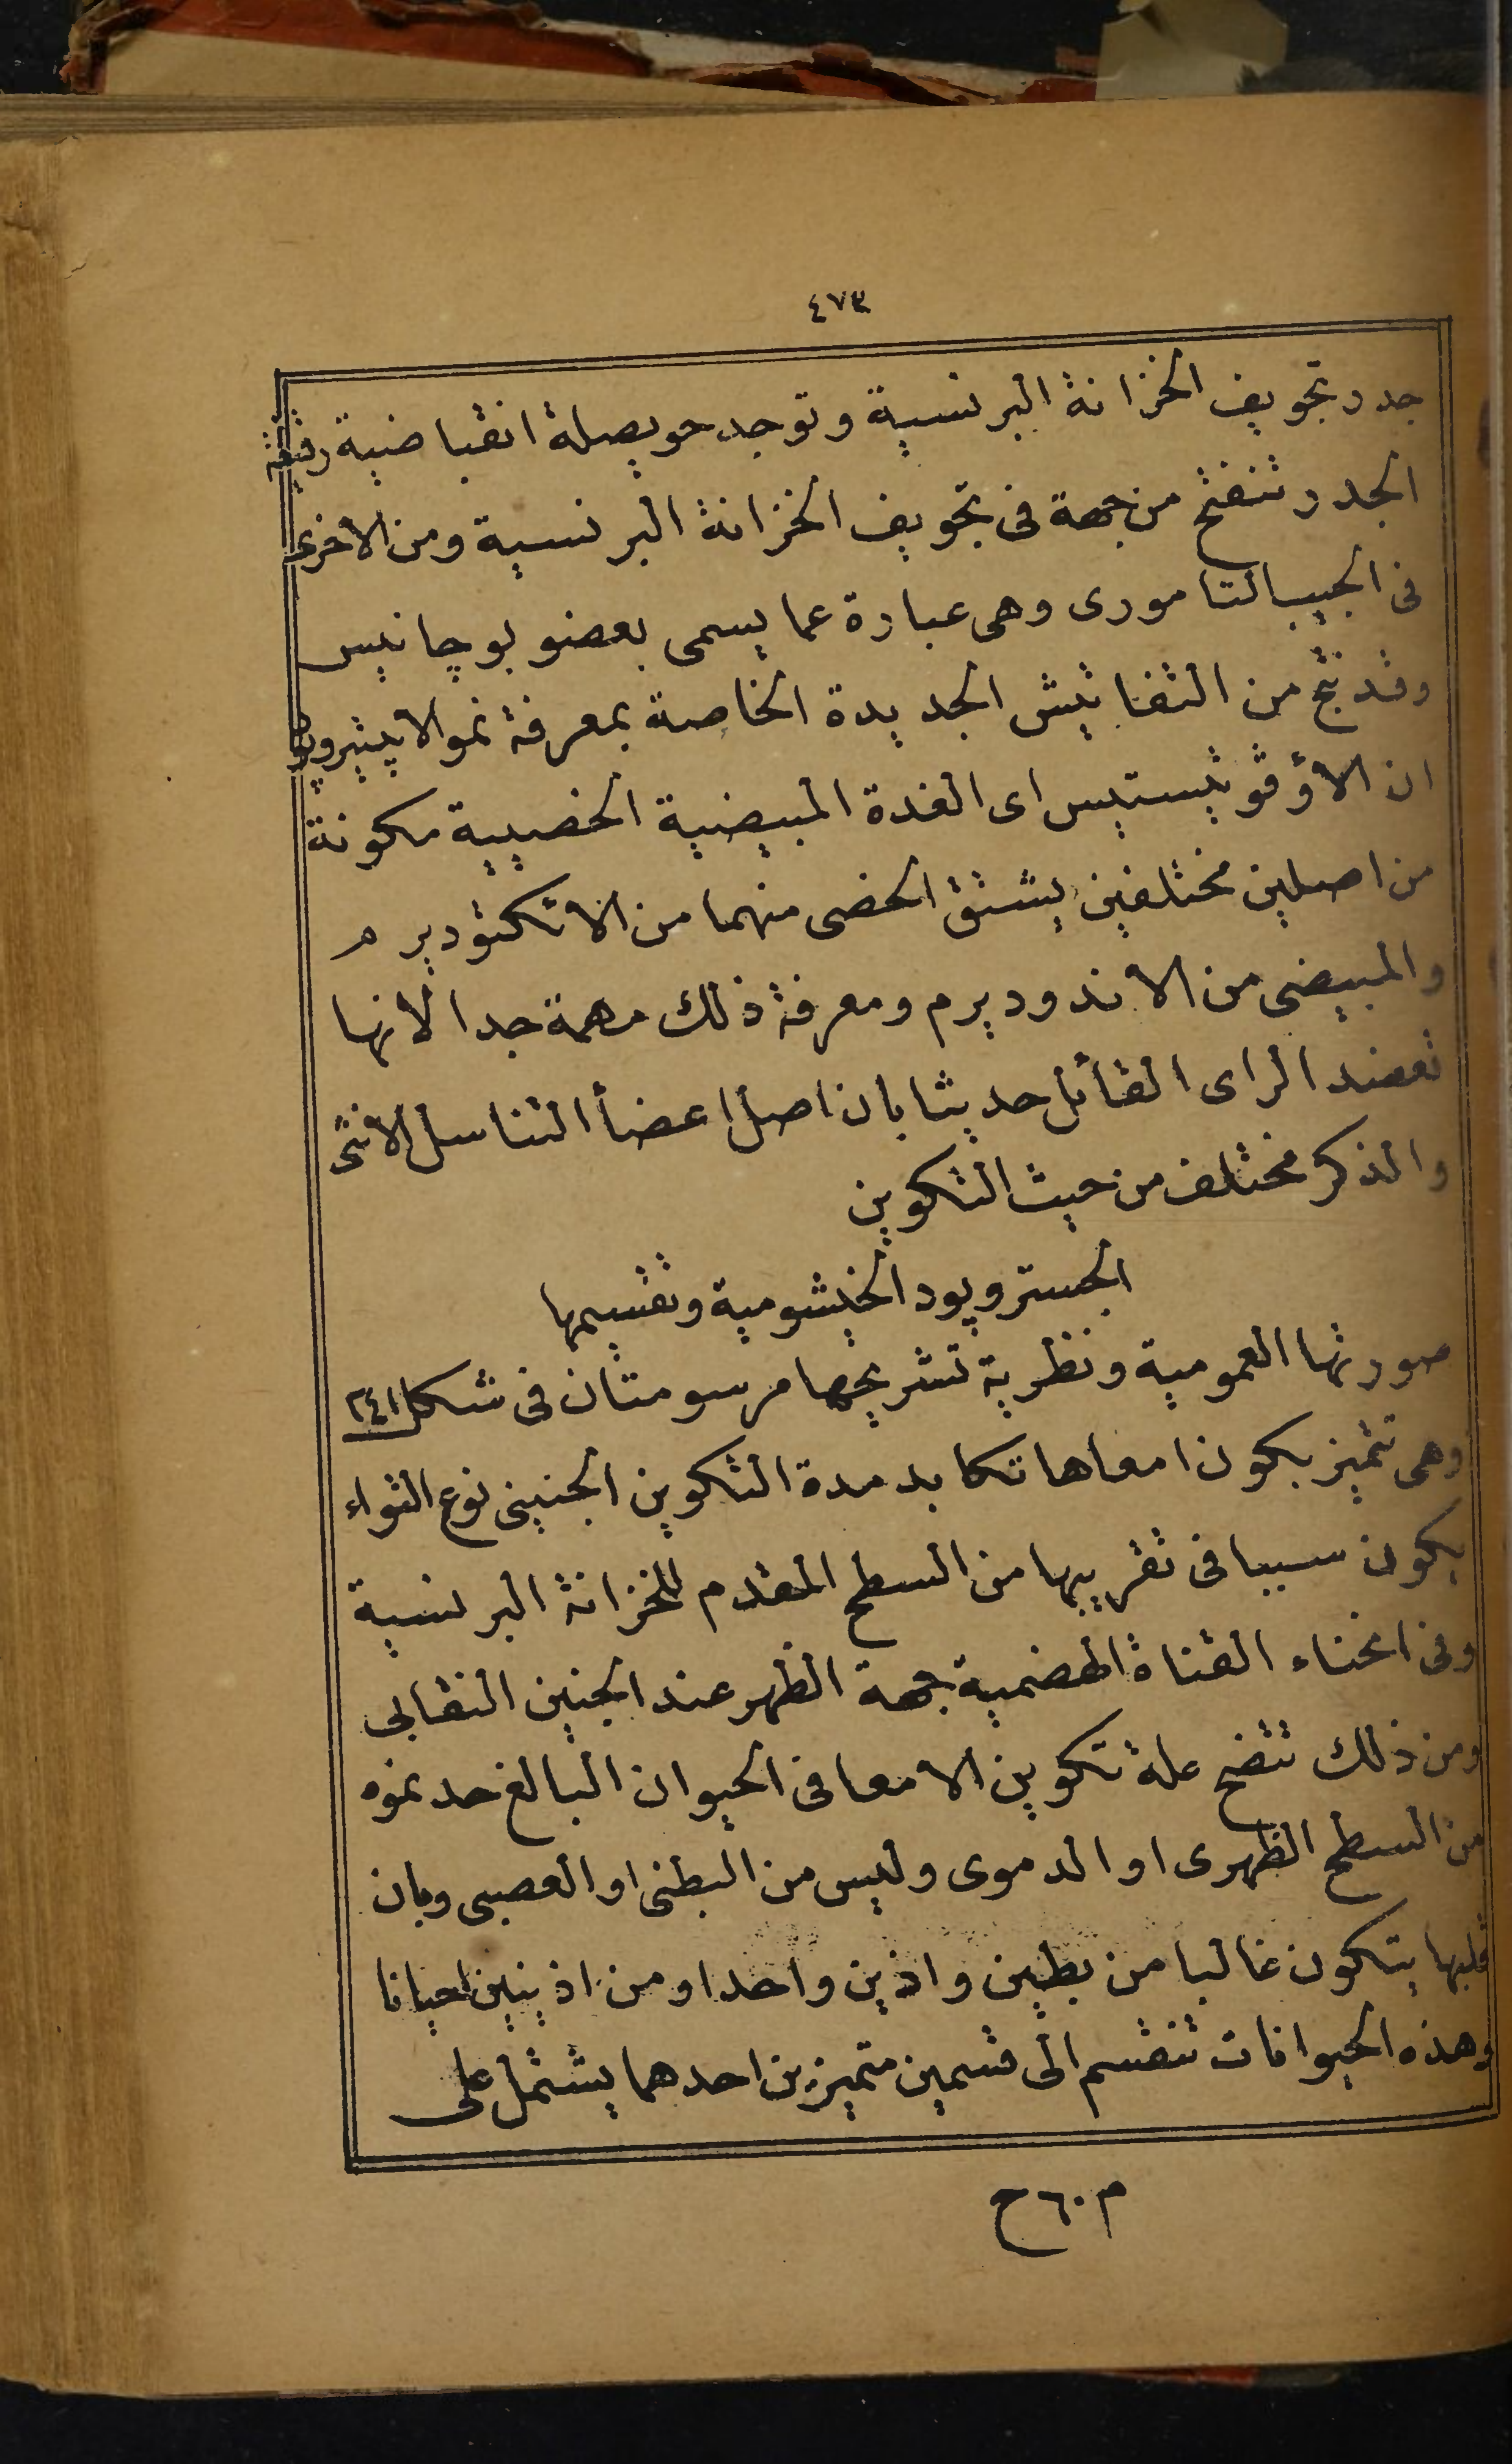 ٤٧٣
جدر تجويف الخزانة البرنسية وتوجد حويصلة انقباضية رقيقة
الجدر تنفتح من جهة فى تجويف الخزانة البرنسية ومن الاخرى
فى الجيب التامورى وهى عبارة عما يسمى بعضو بوچانيس
وقد نتج من التفاتيش الجديدة الخاصة بمعرفة نمو الايتيروپود
ان الاؤڤوتيستيس اى الغدة المبيضية الخصيية مكونة
من اصلين مختلفين يشتق الخصى منهما من الاتكتوديرم
والمبيضى من الاندوديرم ومعرفة ذلك مهمة جدا لانها
تعضد الراى القائل حديثا بان اصل اعضأ التناسل الانثى
والذكر مختلف من حيث التكوين
الجستروپود الخيشومية وتقسيمها
صورتها العمومية ونظرية تشريحها مرسومتان فى شكل ٢٤١
وهى تتميز بكون امعاها تكابد مدة التكوين الجنينى نوع التواء
يكون سببا فى تقريبها من السطح المقدم للخزانة البرنسية
وفى انحناء القناة الهضمية جهة الظهر عند الجنين النقابى
ومن ذلك تتضح علة تكوين الامعا فى الحيوان البالغ حد نموه
من السطح الظهرى او الدموى وليس من البطنى او العصبى وبان
قلبها يتكون غالبا من بطين واذين واحد او من اذينين احيانا
وهذه الحيوانات تنقسم الى قسمين متميزين احدهما يشتمل على
م ٦٠ ح